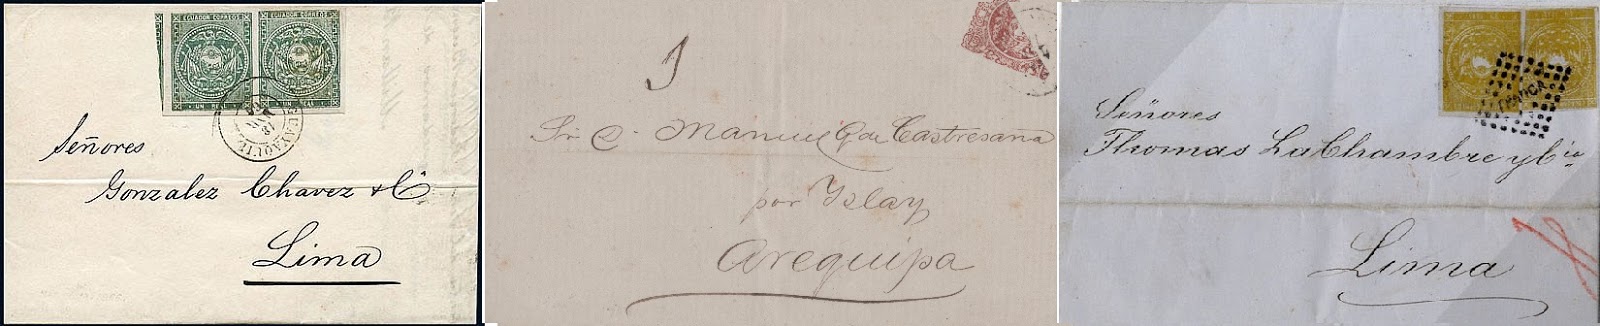 ECUADOR CORREOS ECUADOR CORREOS
UN REAL UN REAL
GUAYAQUIL
Señores
Gonzalez Chavez & Cª
Lima
Manuel G. de Castresana
por Yslay
Arequipa
FRANCA
Señores
Thomas LaChambre y Cia
Lima